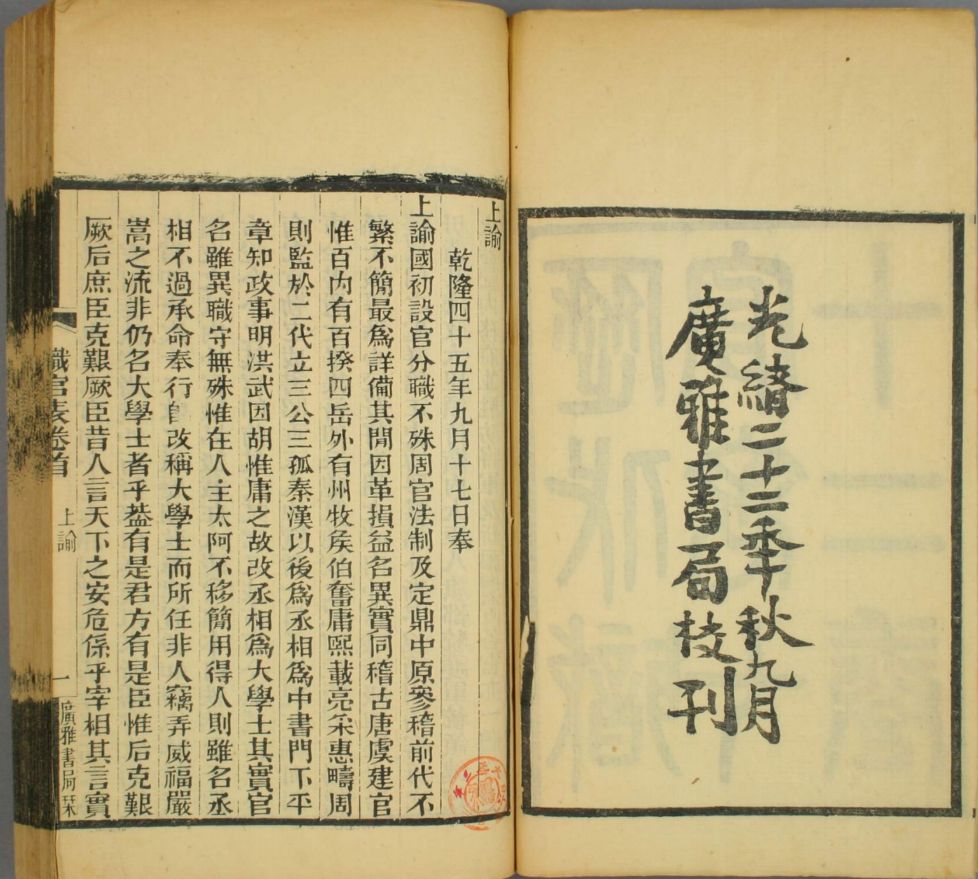 光緒二十二季秋九月
廣雅書局校刊
上諭
乾隆四十五年九月十七日奉
上諭國初設官分職不殊周官法制及定鼎中原參稽前代不
繁不簡最爲詳備其閒因革損益名異實同稽古唐虞建官
惟百內有百揆四岳外有州牧矦伯奮庸熙載亮采惠疇周
則監於二代立三公三孤秦漢以後爲丞相爲中書門下平
章知政事明洪武因胡惟庸之故改丞相爲大學士其實官
名雖異職守無殊惟在人主太阿不移簡用得人則雖名丞
相不過承命奉行卽改稱大學士而所任非人竊弄威福嚴
嵩之流非仍名大學士者乎葢有是君方有是臣惟后克艱
厥后庶臣克艱厥臣昔人言天下之安危係乎宰相其言實
職官表卷首
上諭
一
廣雅書局栞